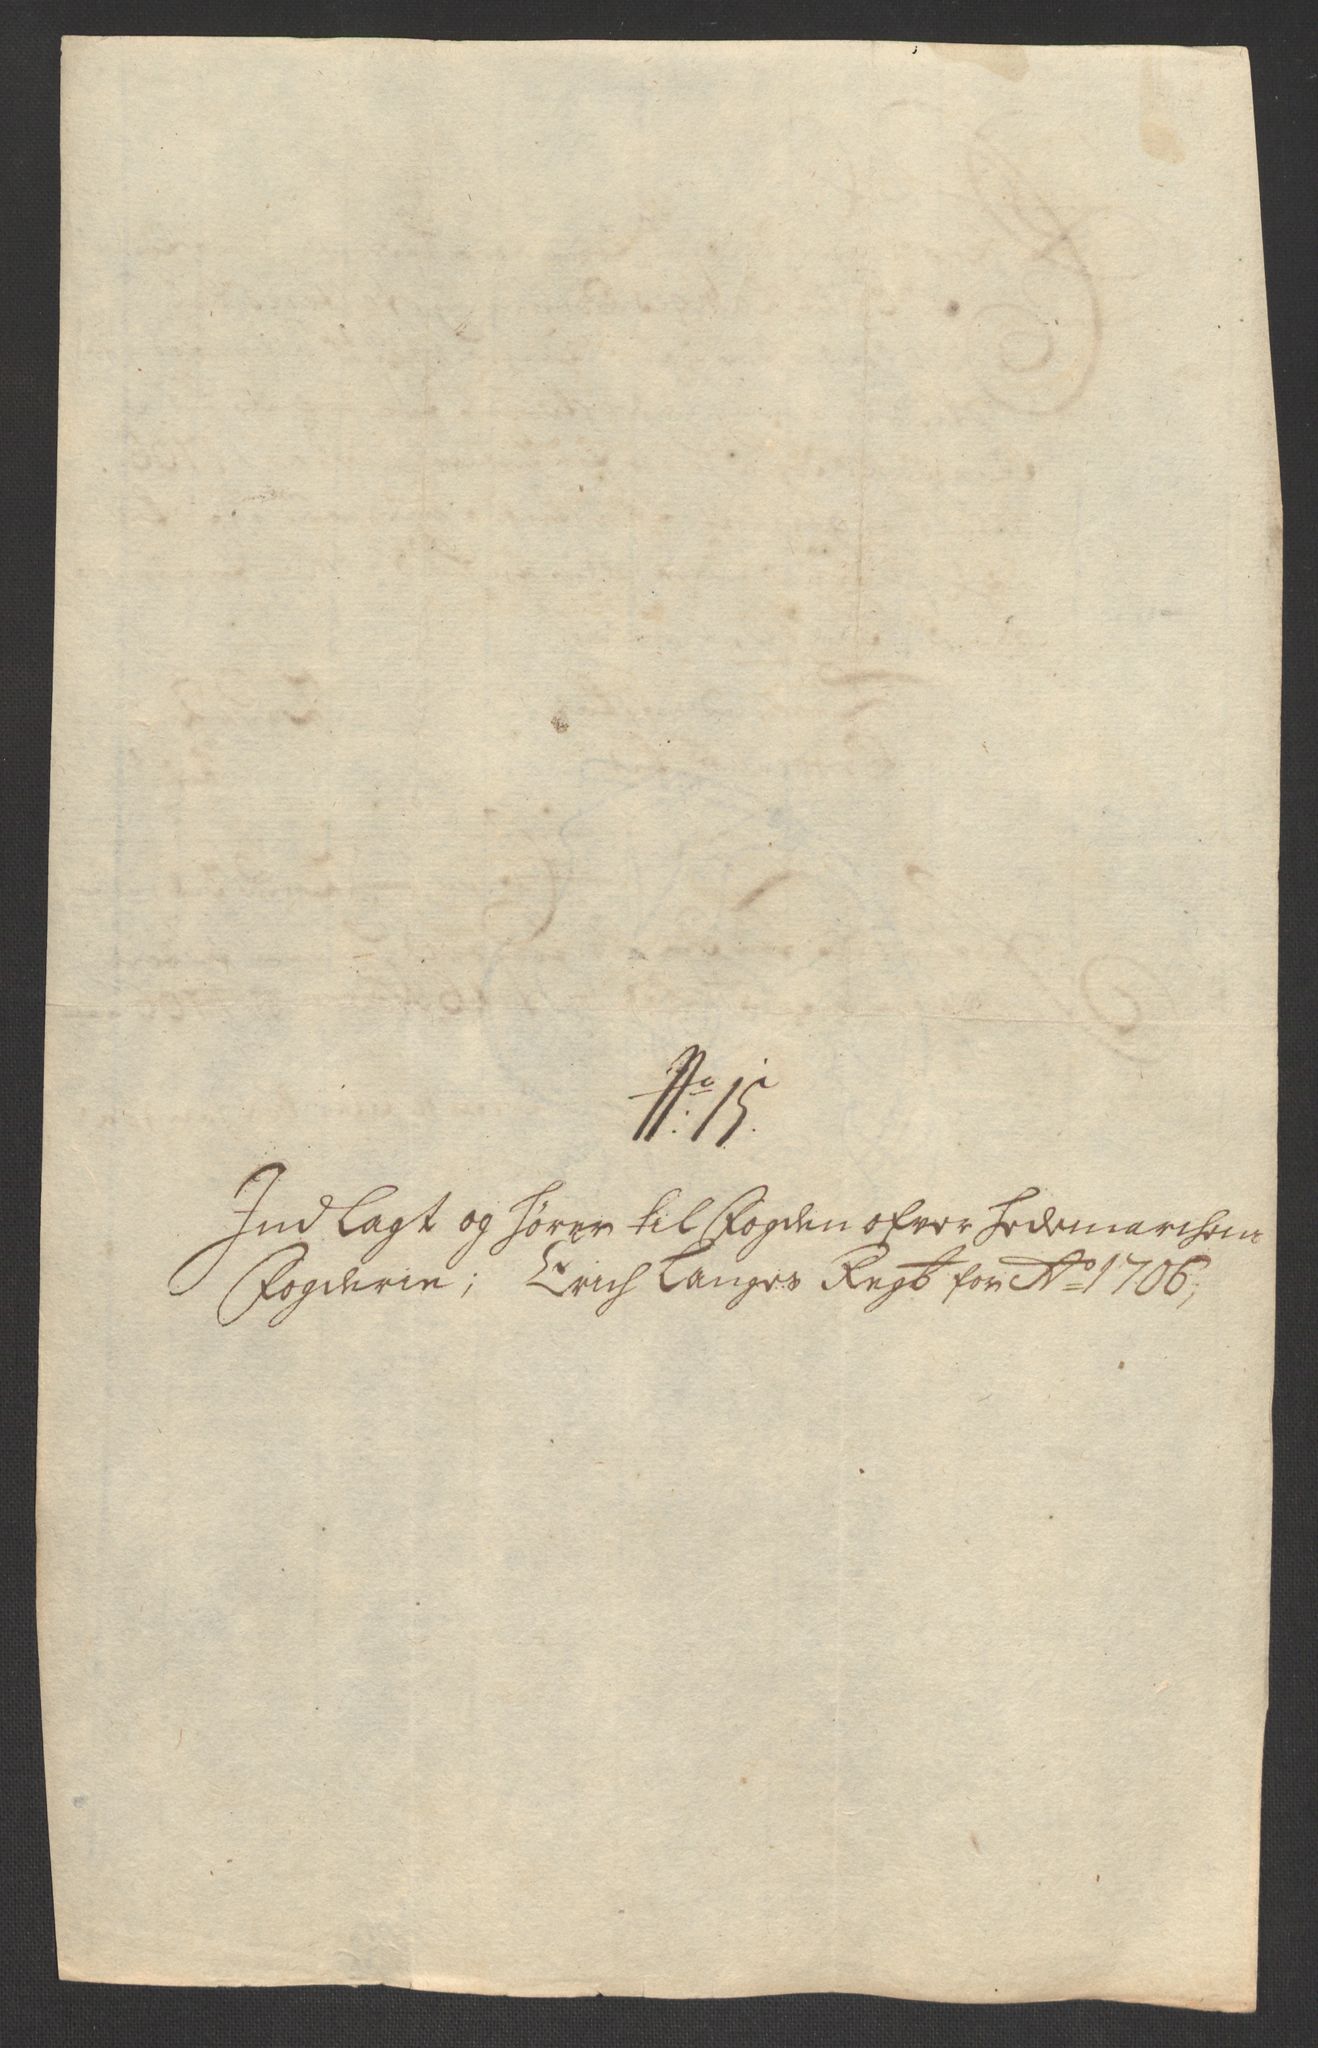 No: 15.
Indlagt og hører til Fogden ofver Hedemarchens
Fogderie; Erich Langes Regb for Ao 1706;